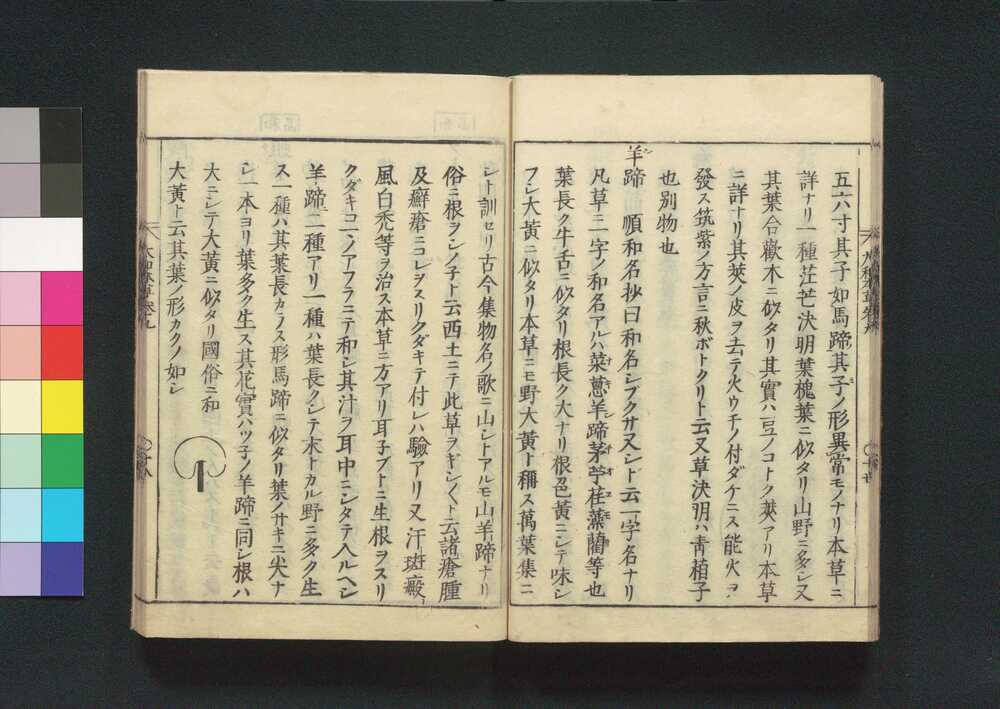 五六寸其子如馬蹄其子ノ形異常モノナリ本草ニ
詳ナリ一種茳芒決明葉槐葉ニ似タリ山野ニ多シ又
其葉合歡木ニ似タリ其實ハ豆ノコトク莢アリ本草
ニ詳ナリ其莢ノ皮ヲ去テ火ウチノ付ダケニス能火ヲ
發ス筑紫ノ方言ニ秋ボトクリト云又草決明ハ青葙子
也別物也
羊蹄 順和名抄曰和名シブクサ又シト云一字名ナリ
凡草ニ一字ノ和名アルハ菜葱羊蹄茅苧荏藻藺等也
葉長ク牛舌ニ似タリ根長ク大ナリ根色黄ニシテ味シ
フシ大黄ニ似タリ本草ニモ野大黄ト稱ス萬葉集ニ
シト訓セリ古今集物名ノ歌ニ山シトアルモ山羊蹄ナリ
俗ニ根ヲシノ子ト云西土ニテ此草ヲギシ〱ト云諸瘡腫
及癬瘡ニコレヲスリクダキテ付レハ驗アリ又汗斑癜
風白禿等ヲ治ス本草ニ方アリ耳子ブトニ生根ヲスリ
クダキコニノアフラニテ和シ其汁ヲ耳中ニシタテ入ルヘシ
羊蹄二種アリ一種ハ葉長クシテ末トカル野ニ多ク生
ス一種ハ其葉長カラス形馬蹄ニ似タリ葉ノサキニ尖ナ
シ一本ヨリ葉多ク生ス其花實ハツ子ノ羊蹄ニ同シ根ハ
大ニシテ大黄ニ似タリ國俗ニ和
大黄ト云其葉ノ形カクノ如シ
大和本草 卷九